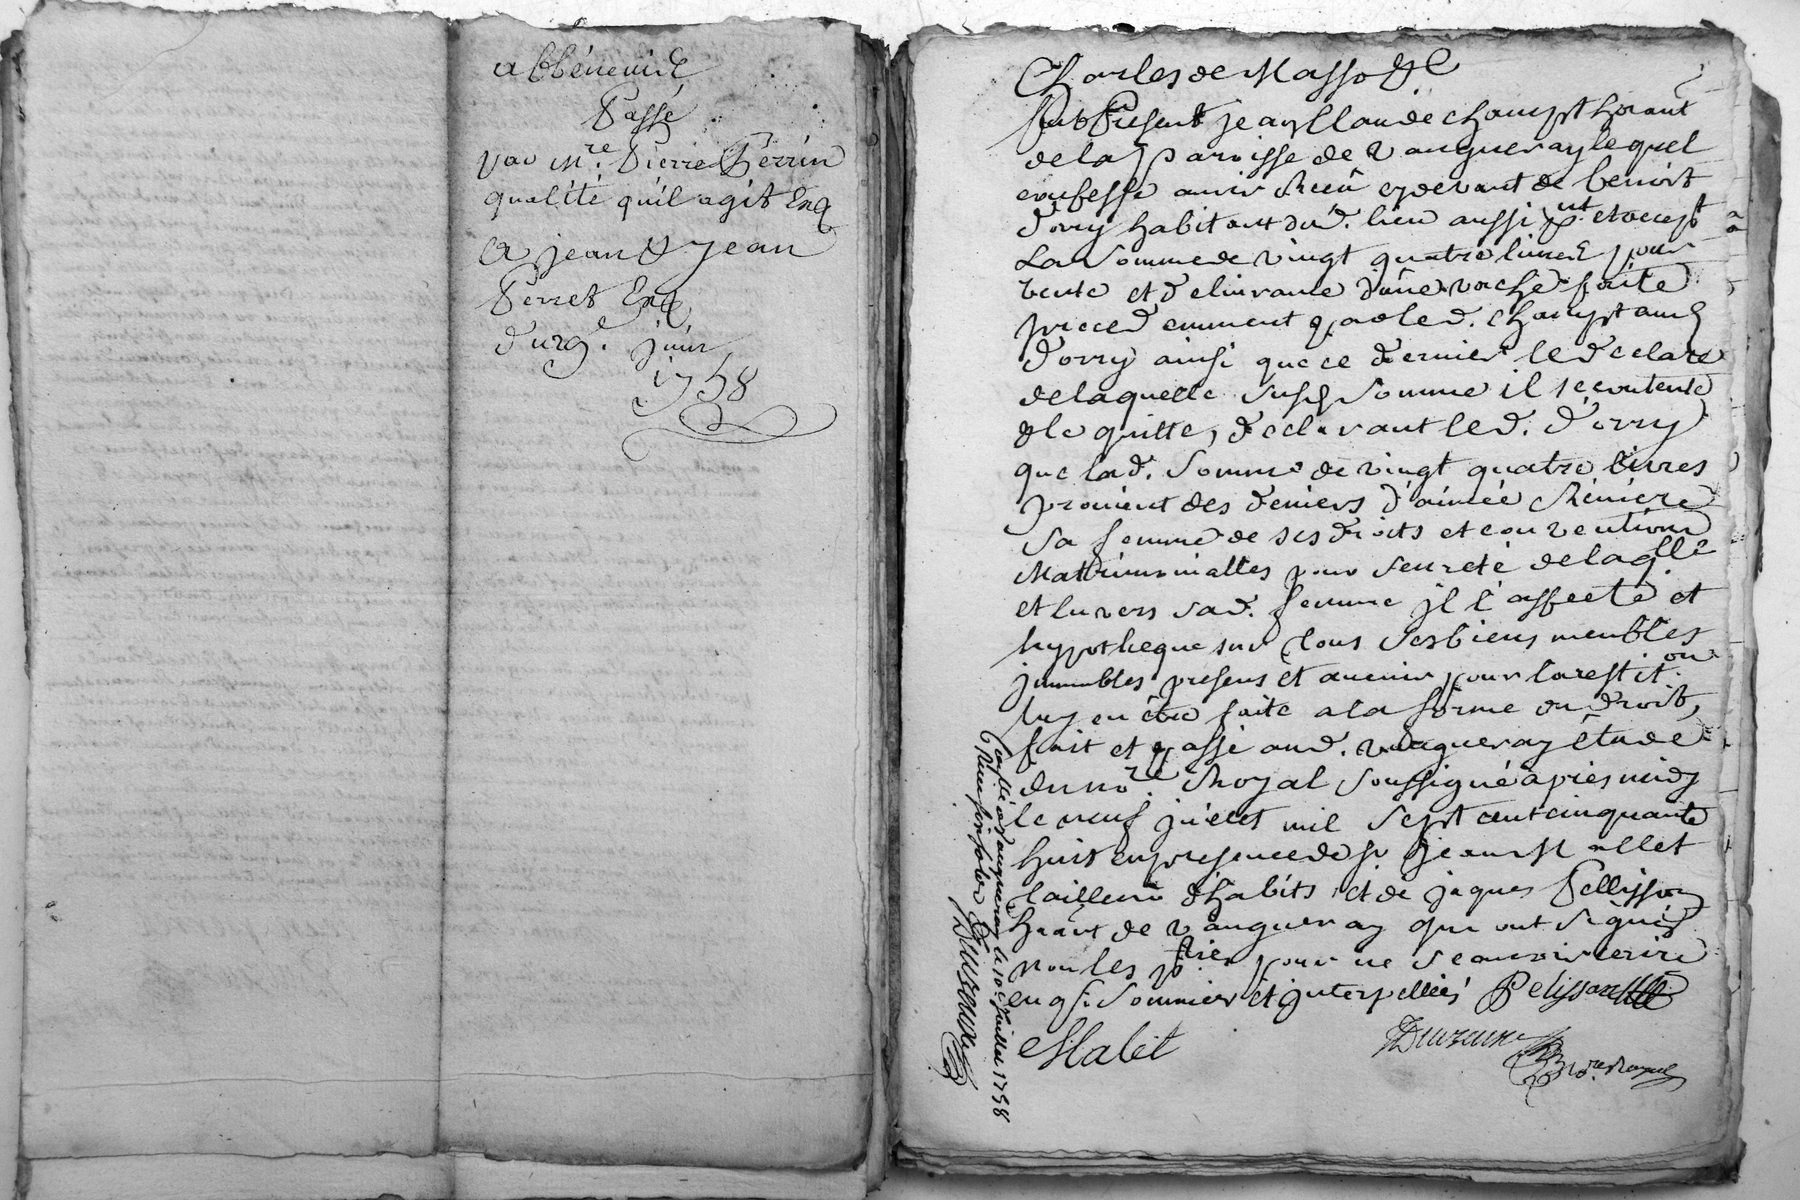 abbénevis
Passé
par Mre. Pierre Perrin
qualité quil agit Enq
a jean & jean
Perret Enq
d'urg.e juin
1758
Charles de Masso &c
fut Present jean Claude champt habant
de la paroisse de vaugneray lequel
confesse avoir Receu cydevant de benoit
d'orry habitant dud. lieu aussi pnt et accept
La Somme de vingt quatre livres pour
vente et délivrance d'une vache faite
precedemment par led. champt aud
d'orry ainsi que ce dernier le declare
de laquelle susd somme il se contente
& le quitte, déclarant led. d'orry
que lad. Somme de vingt quatre livres
provient des deniers d'aimée
Sa femme de ses droits et conventions
Matrimonialles pour Seureté de laqlle
et envers sad. femme il l'affecte et
hypotheque sur tous ses biens meubles
immeubles presens et avenir pour la restit.on
luy en être faite a la forme du droit,
fait et passé aud. vaugneray étude
du no.re Royal Soussigné apres midy
le neuf juillet mil Sept cent cinquante
huit en presence de sr jean Mallet
tailleur d'habits, et de jaques Pellisson
hants de vaugneray qui ont signés
non les pties pour ne scavoir ecrire
enqs. Sommier et interpellées Pelisson
Malet
No.re Royal
Conllé a vaugneray le 10e juillet 1758
Receu six sols